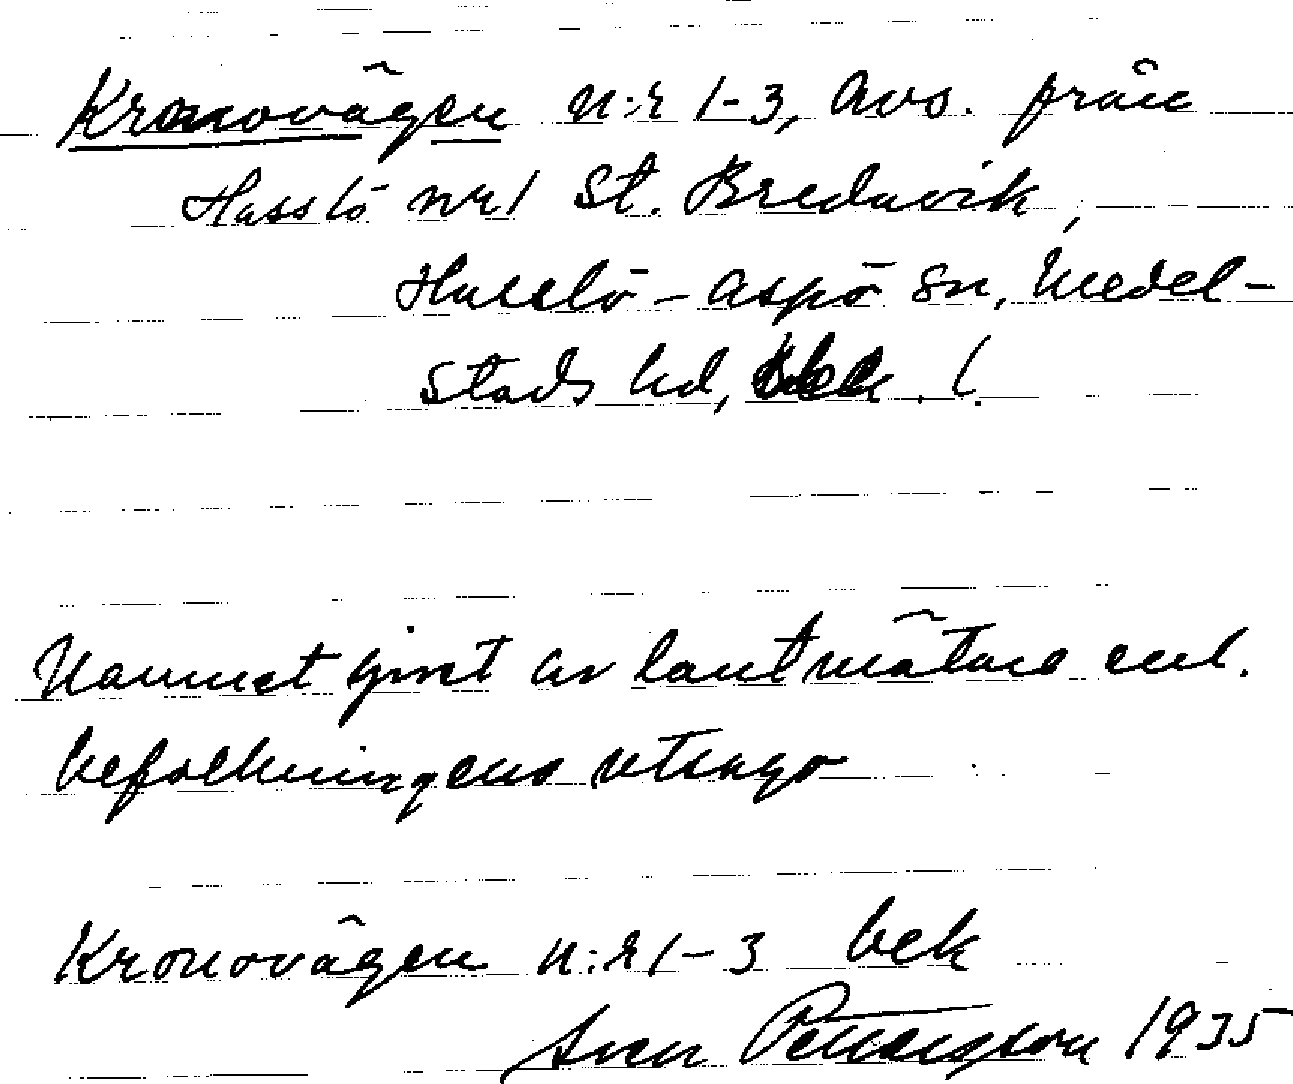 Kronovägen n:r 1-3, avs. från
Hasslö nr 1 St. Bredavik,
Hasslö - Aspö sn, Medel-
stads hd, Blek. l.
Namnet givet av lantmätare enl.
befolkningens utsago
Kronovägen n:r 1-3 bek
Sven Pettersson 1935